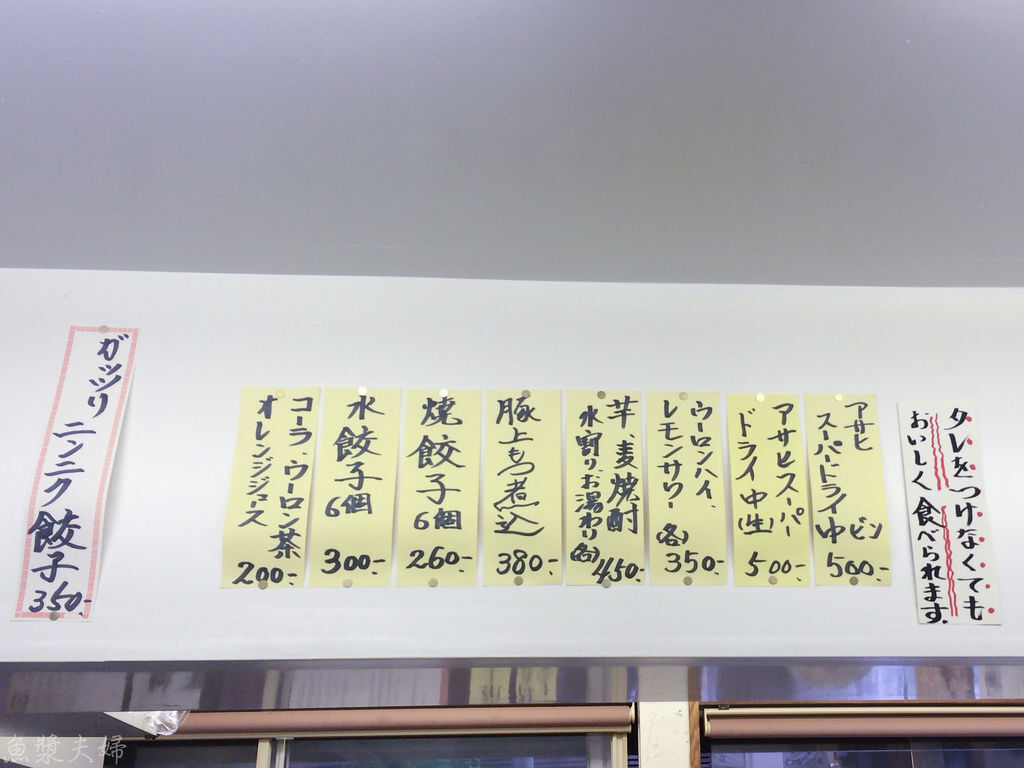 タレをつけなくても
おいしく食べられます.
アサヒ
スーパードライ中ビン
500-
アサヒスーパー
ドライ中(生)
500-
ウーロンハイ、
レモンサワー(各)
350-
芋、麦焼酎
水割り、お湯わり(各)
450-
豚上もつ煮込
380-
焼餃子
6個
260-
水餃子
6個
300-
コーラ、ウーロン茶
オレンジジュース
200-
ガッツリニンニク餃子
350-
魚漿夫婦